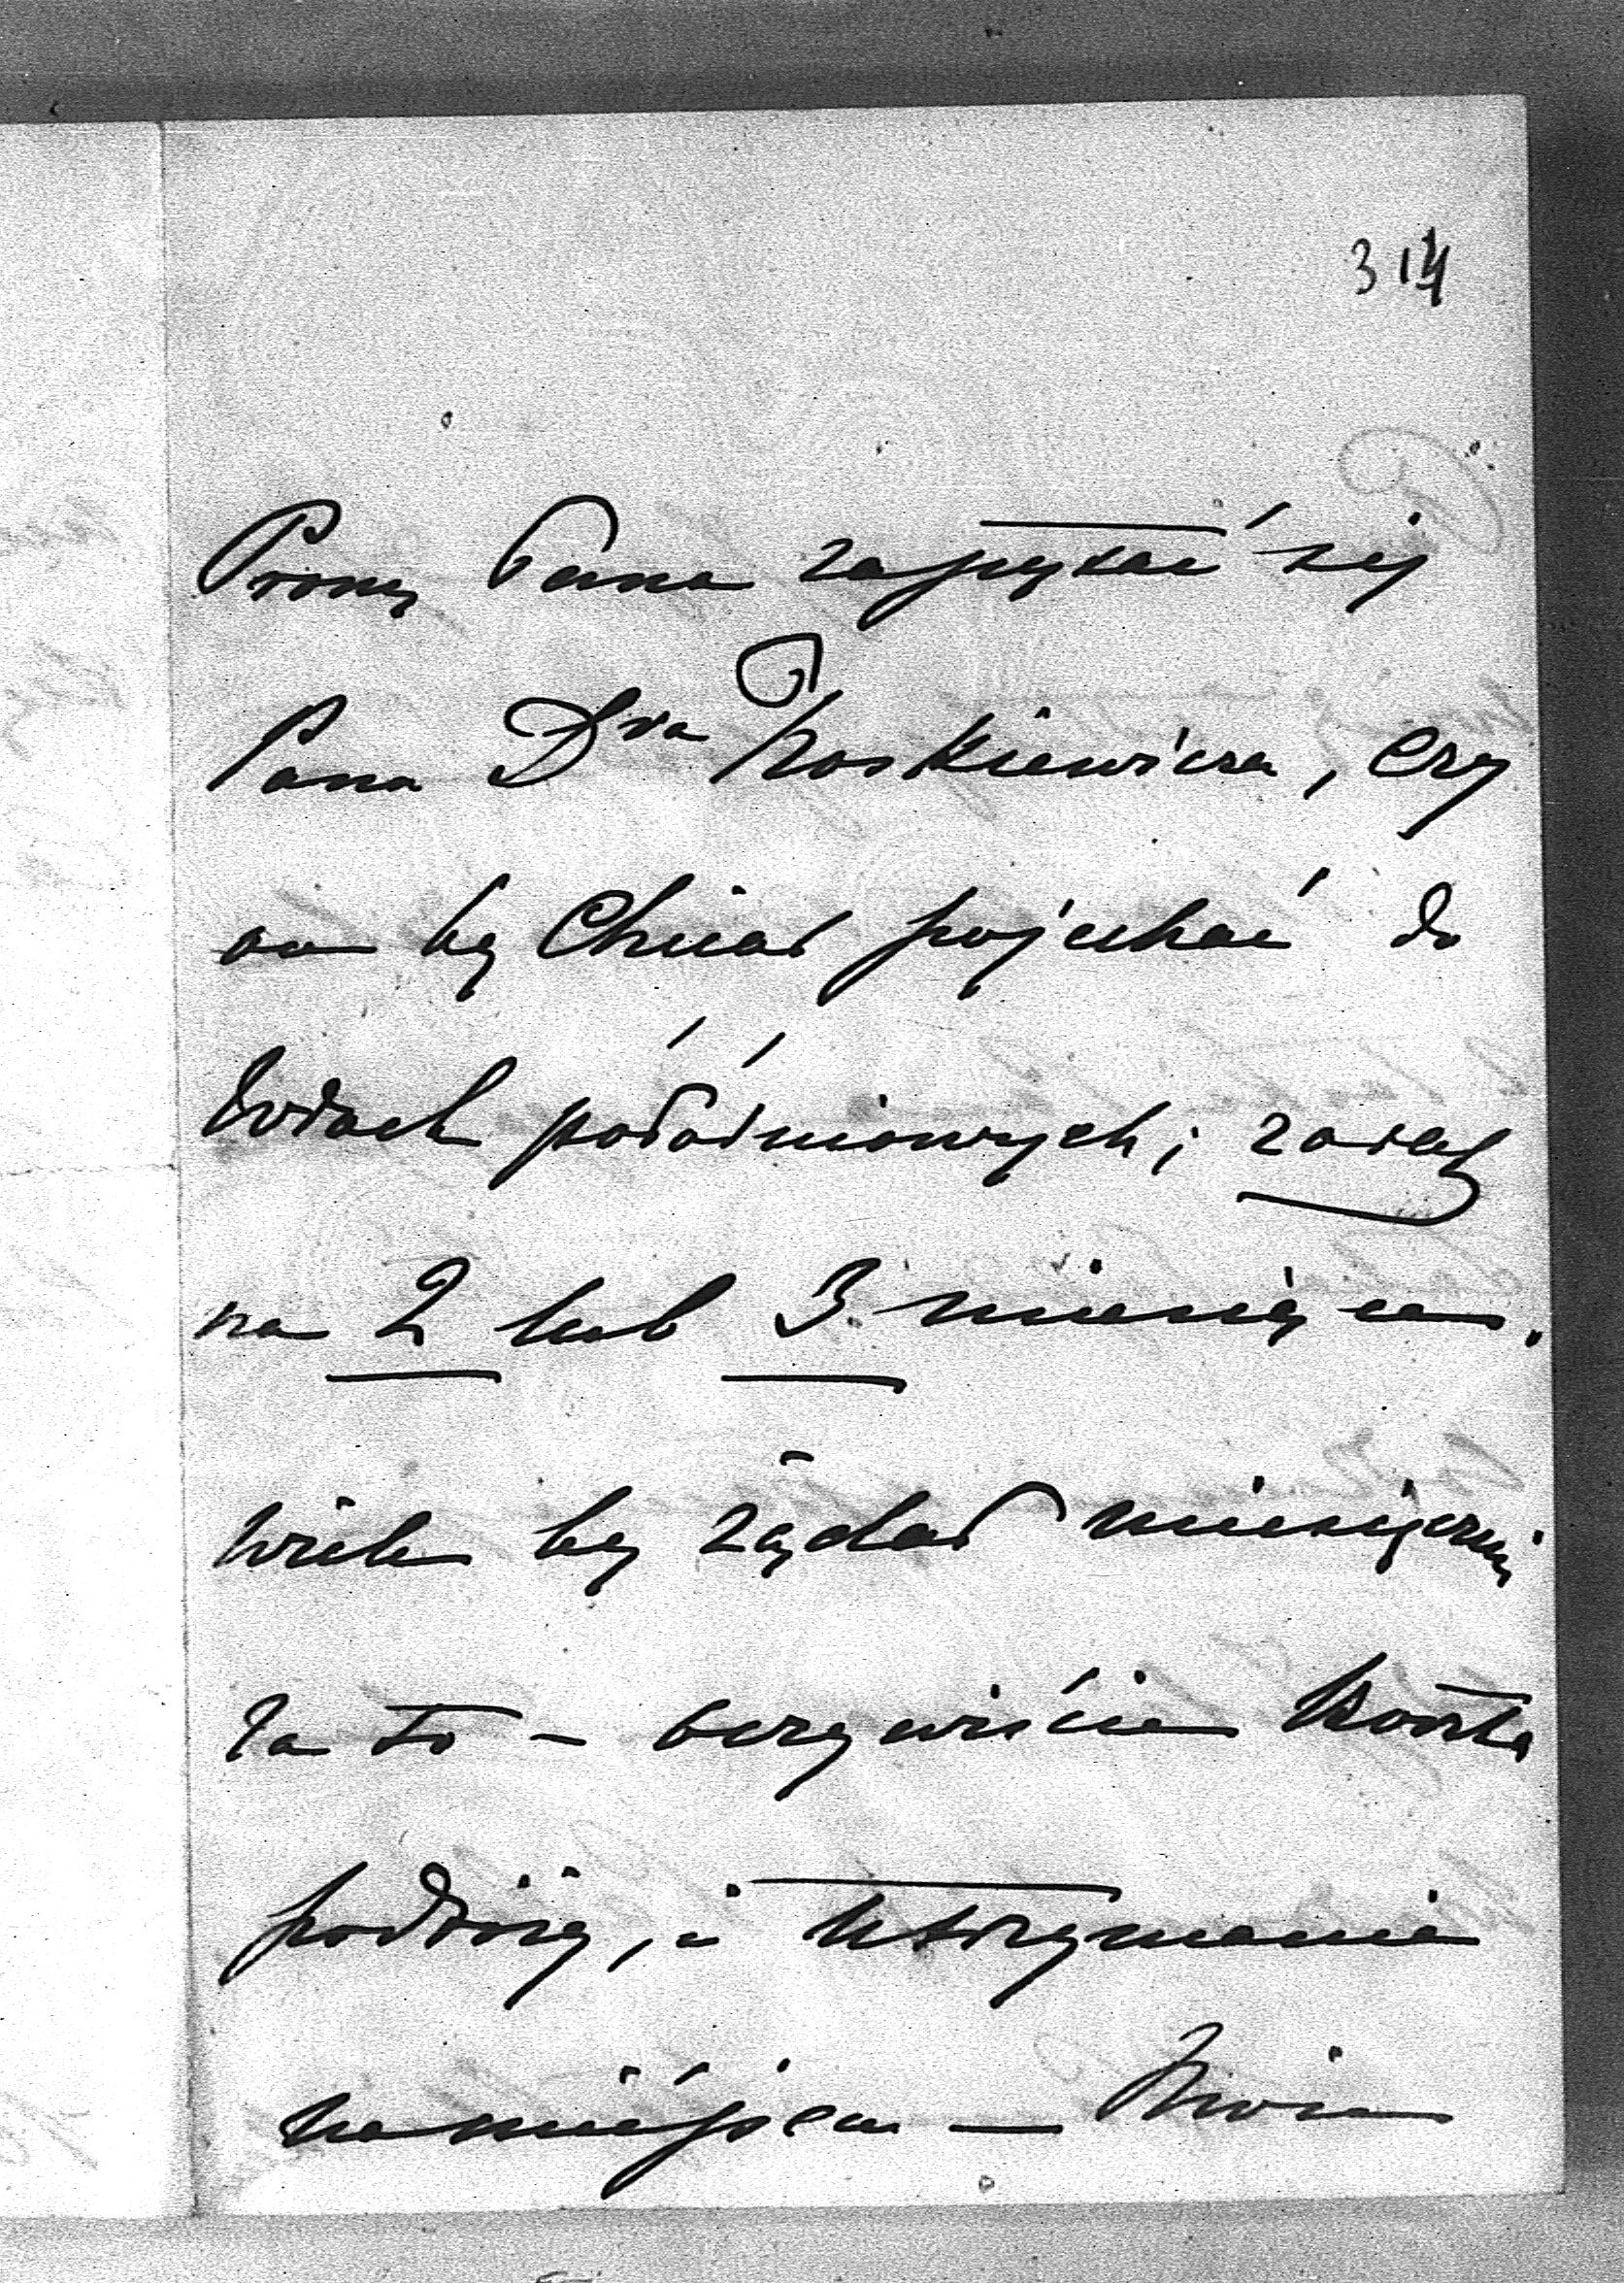 314
Proszę Pana zapytać się
Pana Dra Koskiewicza, czy
on by Chciał pojechać do
południowych; zaraz
na 2 lub 3 miesiące.
wiele by żądał miesięcznie
za to – oczywiście koszta
podróży, i utrzymanie
na miéjscu —